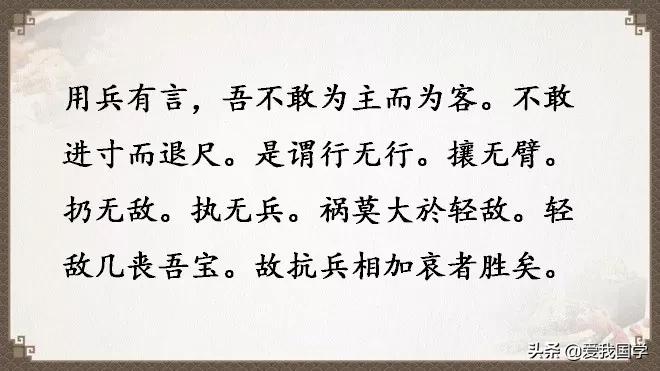 用兵有言，吾不敢为主而为客。不敢
进寸而退尺。是谓行无行。攘无臂。
扔无敌。执无兵。祸莫大於轻敌。轻
敌几丧吾宝。故抗兵相加哀者胜矣。
头条 @爱我国学